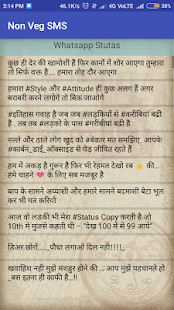 3:14 PM
46.1K/s
4G VoLTE
Non Veg SMS
Whatsapp Stutas
कुछ ही देर की खामोशी है फिर कानों में शोर आएगा तुम्हारा
तो सिर्फ वक्त है.... हमारा तोह दौर आएगा
हमारा #Style और #Attitude ही कुछ अलग हैं अगर
बराबरी करने लगोगे तो बिक जाओगे
#इतिहास गवाह है जब जब #लड़कियों से #करीबीयां बढ़ी
है , तब तब #लड़के पास के #गरीबीयां बढ़ी है
मल्ले और ठाले लोग खुद को #बेकार मत समझीए. आपके
#कार्बन_डाई_ऑक्साइड से पेड़ जीवित रहते हैं
हम में अकड़ है गुरूर है फिर भी रेहमत देखो रब 👆 की...
हमे चाहने ❤ के लिए सब मजबूर है
बाप के सामने अय्याशी और हमारे सामने बदमाशी बेटा भूल
कर भी मत करियो
आज वो लडकी भी मेरा #Status Copy करती है जो
10th मे मुजसे कहती थी – "देख 100 मे से 99 आये"
डिअर खोरों....पौधा लगाओ दिल नहीं!!!!!
ख्वाहिश नही मुझे मशहूर होने की. .. आप मुझे पहचानते हो
_बस इतना ही काफी है..!!